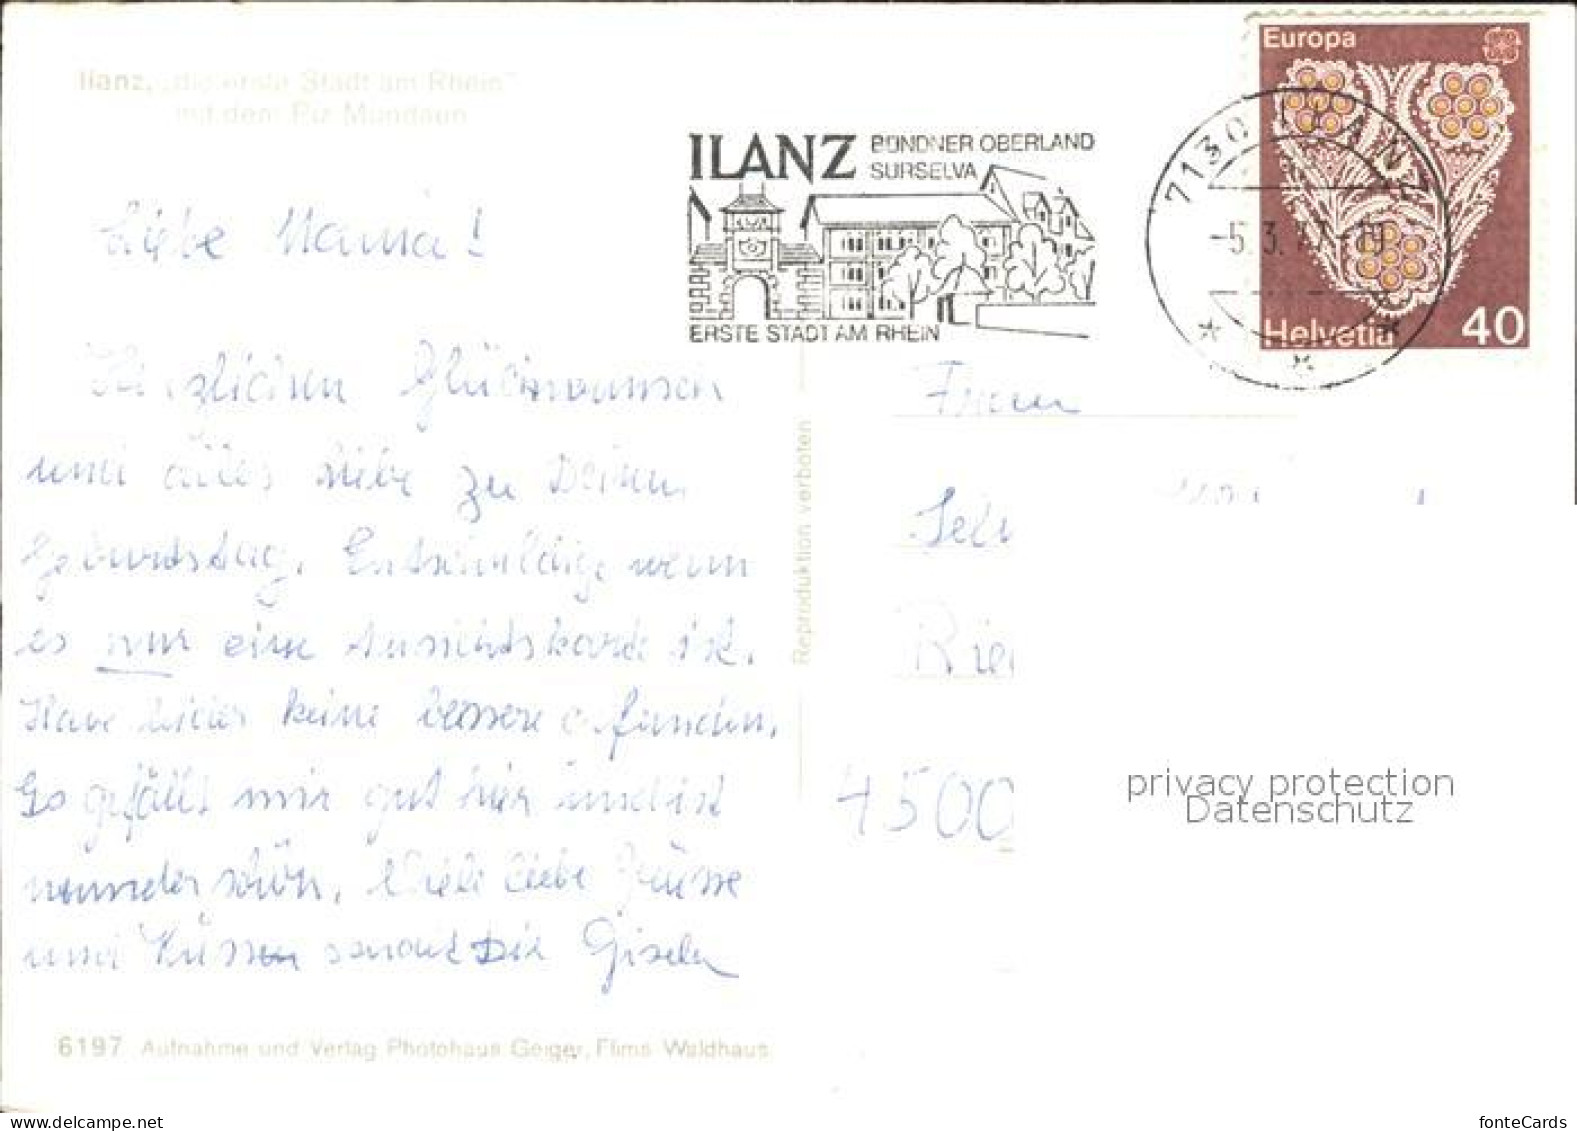 Ilanz, „die erste Stadt am Rhein"
mit dem Piz Mundaun
ILANZ BÜNDNER OBERLAND
SURSELVA
ERSTE STADT AM RHEIN
7130 ILANZ
-5.3.77-19
Europa
Helvetia 40
Liebe Mama!
Herzlichen Glückwunsch
und alles Liebe zu Deinem
Geburtstag. Entschuldige wenn
es nur eine Ansichtskarte ist.
Habe leider keine bessere gefunden.
Es gefällt mir gut hier und ist
wunderschön. Viele liebe Grüsse
und Küsse sendet Dir Gisela
Frau
4500
Reproduktion verboten
privacy protection
Datenschutz
6197 Aufnahme und Verlag Photohaus Geiger, Flims Waldhaus
fonteCards